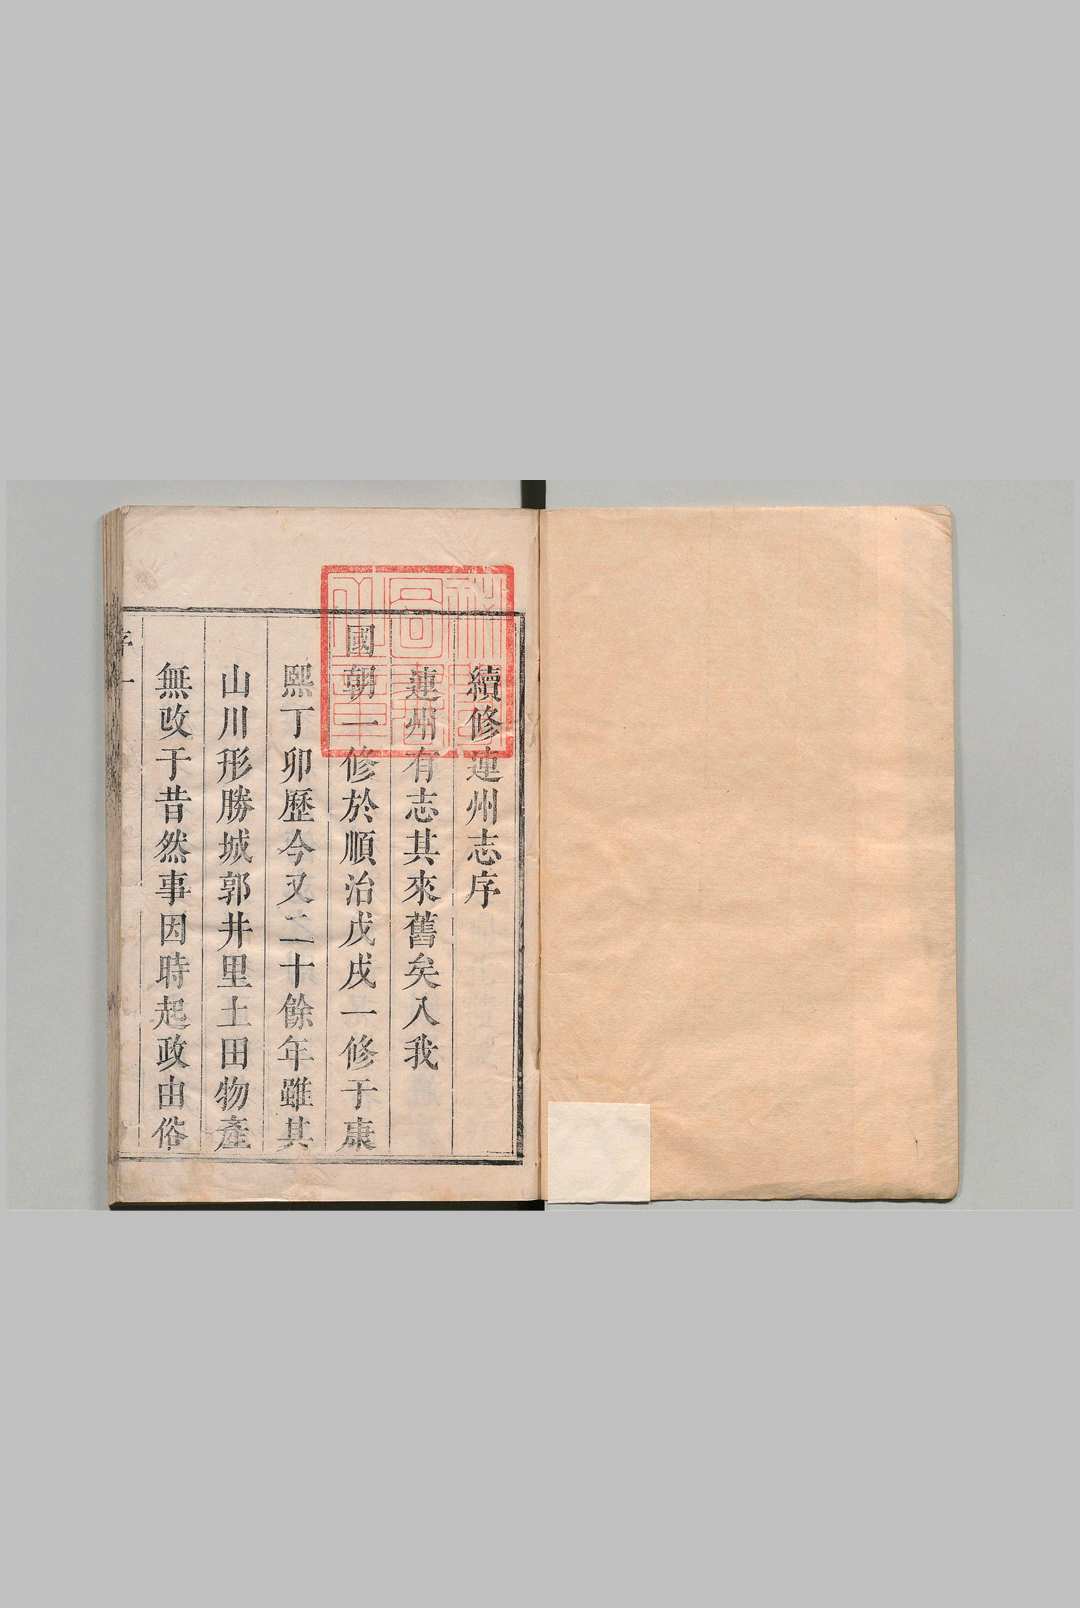 續修連州志序
連州有志其來舊矣入我
國朝一修於順治戊戌一修于康
熙丁卯歷今又二十餘年雖其
山川形勝城郭井里土田物產
無改于昔然事因時起政由俗
序 一